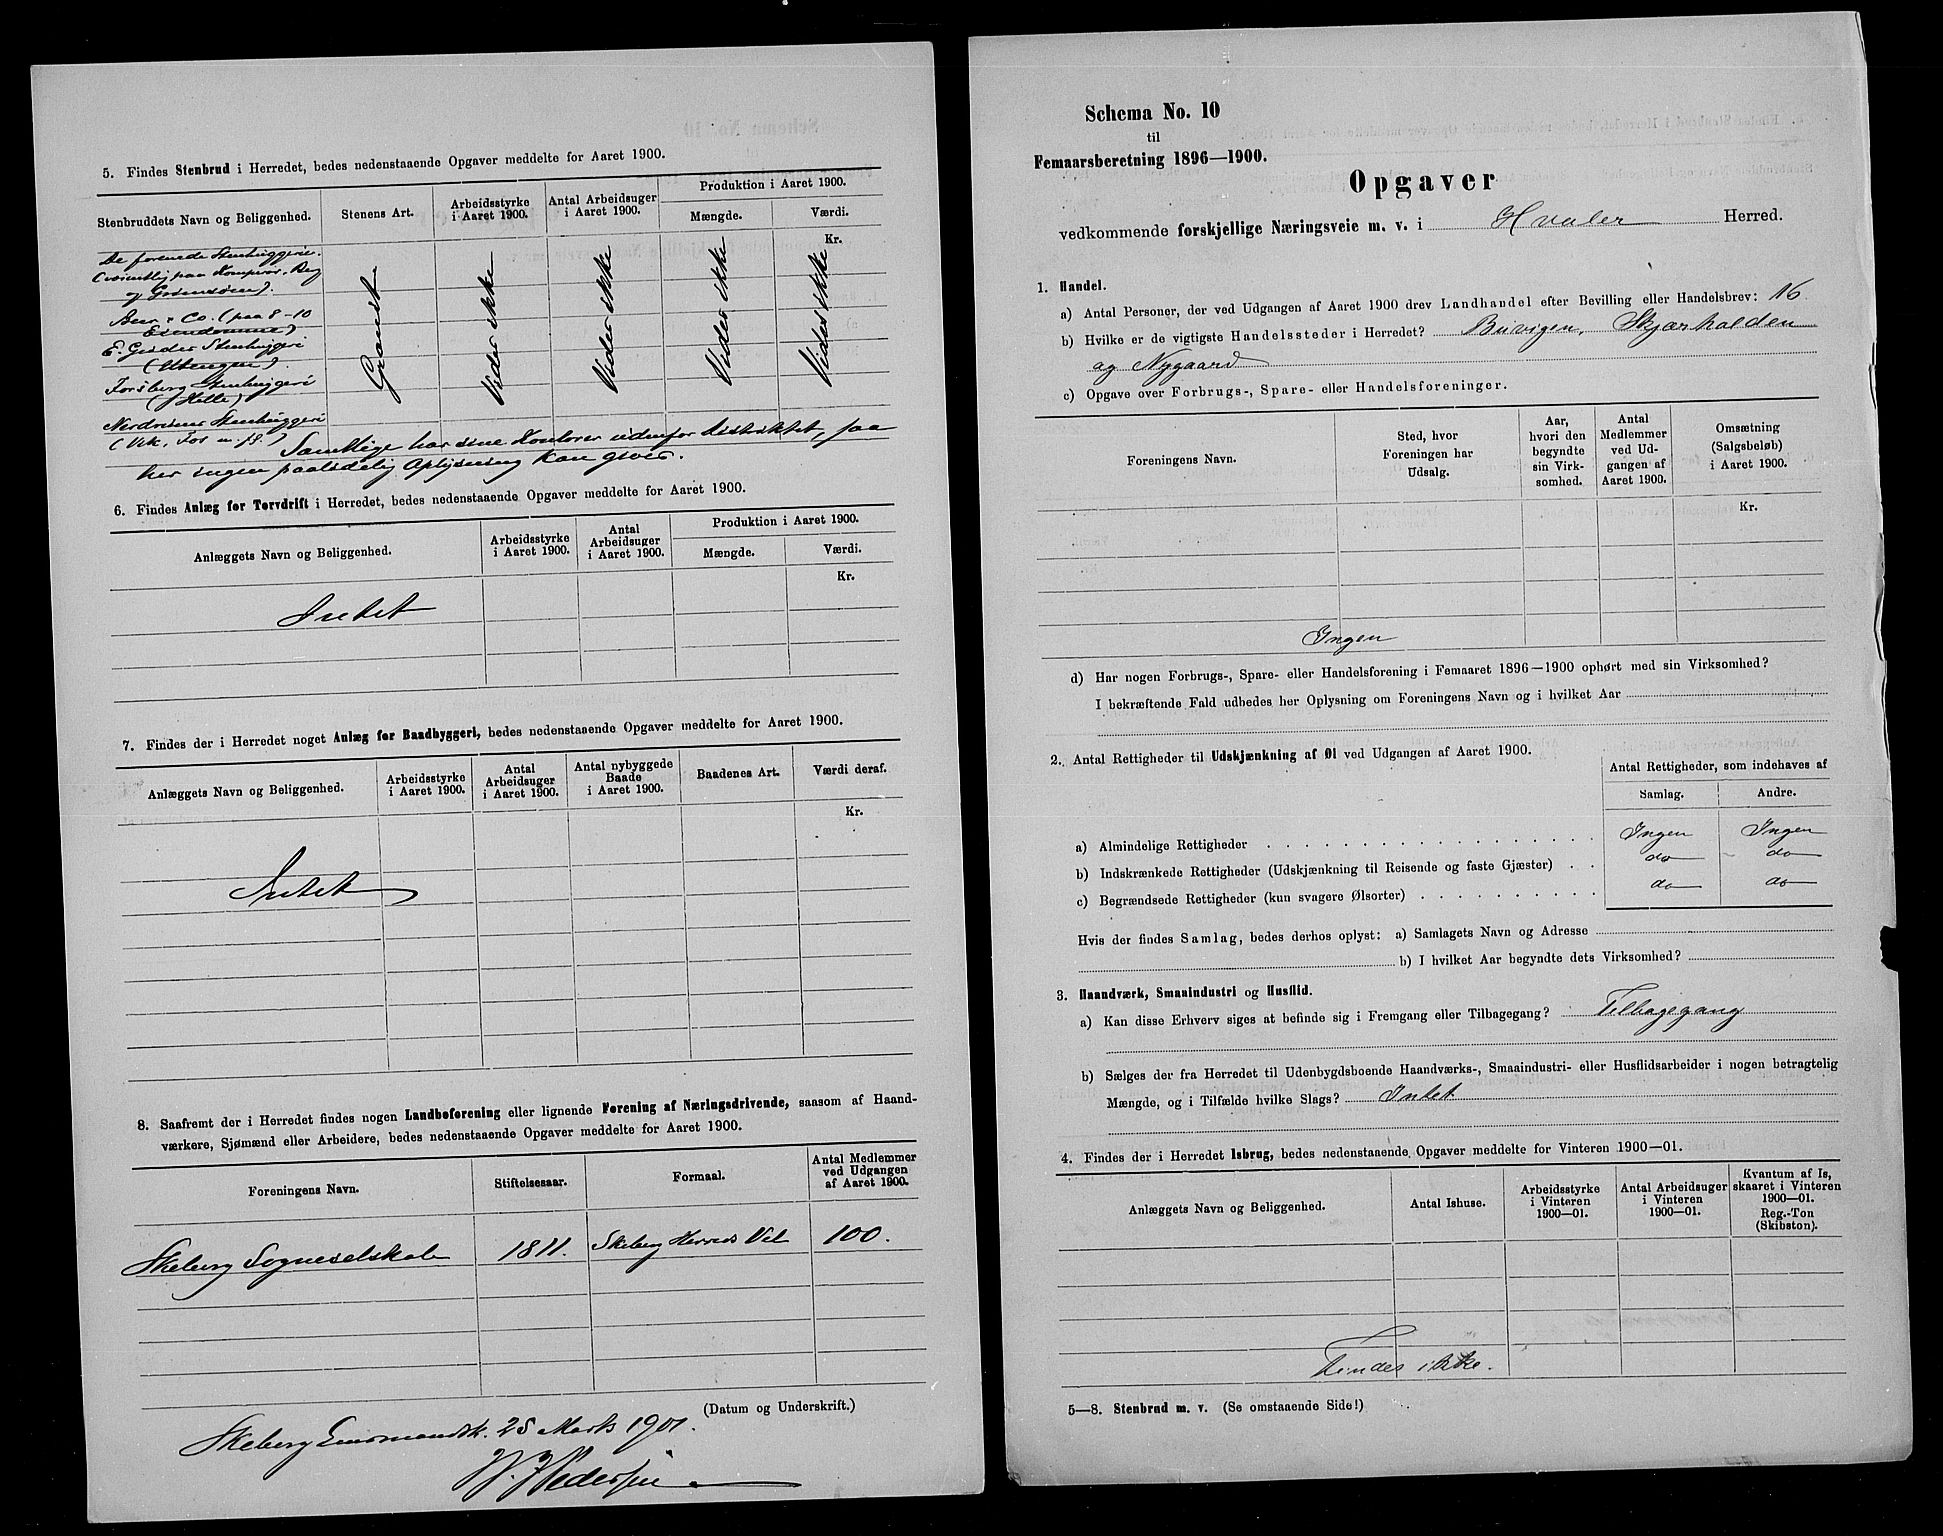 5. Findes Stenbrud i Herredet, bedes nedenstaaende Opgaver meddelte for Aaret 1900.
Stenbruddets Navn og Beliggenhed.
Stenens Art.
Arbeidsstyrke
i Aaret 1900.
Antal Arbeidsuger
i Aaret 1900.
Produktion i Aaret 1900.
Mængde.
Værdi.
Kr.
De forenede Stenhuggerier
og
& Co. (paa 8-10
Eiendomme)
Stenhuggeri
Forsberg Stenhuggeri
(Helle)
Stenhuggeri
(Vik,
Granit
Vides ikke
Vides ikke
Vides ikke
Vides ikke
Samtlige har sine Kontorer udenfor Distriktet, saa
her ingen paalidelig Oplysning kan gives.
6. Findes Anlæg for Torvdrift i Herredet, bedes nedenstaaende Opgaver meddelte for Aaret 1900.
Anlæggets Navn og Beliggenhed.
Arbeidsstyrke
i Aaret 1900.
Antal
Arbeidsuger
i Aaret 1900.
Produktion i Aaret 1900.
Mængde.
Værdi.
Kr.
Intet
7. Findes der i Herredet noget Anlæg for Baadbyggeri, bedes nedenstaaende Opgaver meddelte for Aaret 1900.
Anlæggets Navn og Beliggenhed.
Arbeidsstyrke
i Aaret 1900.
Antal
Arbeidsuger
i Aaret 1900.
Antal nybyggede
Baade
i Aaret 1900.
Baadenes Art.
Værdi deraf.
Kr.
Intet
8. Saafremt der i Herredet findes nogen Landboforening eller lignende Forening af Næringsdrivende, saasom af Haand-
værkere, Sjømænd eller Arbeidere, bedes nedenstaaende Opgaver meddelte for Aaret 1900.
Foreningens Navn.
Stiftelsesaar.
Formaal.
Antal Medlemmer
ved Udgangen
af Aaret 1900.
Skeberg Sogneselskab
1811.
Skeberg Herreds Vel
100.
(Datum og Underskrift.)
Skeberg Lensmandsk. 25 Marts 1901.
Pedersen
Schema No. 10
til
Femaarsberetning 1896—1900.
Opgaver
vedkommende forskjellige Næringsveie m. v. i Hvaler Herred.
1. Handel.
a) Antal Personer, der ved Udgangen af Aaret 1900 drev Landhandel efter Bevilling eller Handelsbrev: 16.
b) Hvilke er de vigtigste Handelssteder i Herredet? Buvigen, Skjærhalden
og Nygaard
c) Opgave over Forbrugs-, Spare- eller Handelsforeninger.
Foreningens Navn.
Sted, hvor
Foreningen har
Udsalg.
Aar,
hvori den
begyndte
sin Virk-
somhed.
Antal
Medlemmer
ved Ud-
gangen af
Aaret 1900.
Omsætning
(Salgsbeløb)
i Aaret 1900.
Kr.
Ingen
d) Har nogen Forbrugs-, Spare- eller Handelsforening i Femaaret 1896—1900 ophørt med sin Virksomhed?
I bekræftende Fald udbedes her Oplysning om Foreningens Navn og i hvilket Aar
2. Antal Rettigheder til Udskjænkning af Øl ved Udgangen af Aaret 1900.
Antal Rettigheder, som indehaves af
Samlag.
Andre.
a) Almindelige Rettigheder Ingen Ingen
b) Indskrænkede Rettigheder (Udskjænkning til Reisende og faste Gjæster) do do
c) Begrændsede Rettigheder (kun svagere Ølsorter) do do
Hvis der findes Samlag, bedes derhos oplyst: a) Samlagets Navn og Adresse
b) I hvilket Aar begyndte dets Virksomhed?
3. Haandværk, Smaaindustri og Husflid.
a) Kan disse Erhverv siges at befinde sig i Fremgang eller Tilbagegang? Tilbagegang
b) Sælges der fra Herredet til Udenbygdsboende Haandværks-, Smaaindustri- eller Husflidsarbeider i nogen betragtelig
Mængde, og i Tilfælde hvilke Slags? Intet
4. Findes der i Herredet Isbrug, bedes nedenstaaende Opgaver meddelte for Vinteren 1900—01.
Anlæggets Navn og Beliggenhed.
Antal Ishuse.
Arbeidsstyrke
i Vinteren
1900—01.
Antal Arbeidsuger
i Vinteren
1900—01.
Kvantum af Is,
skaaret i Vinteren
1900—01.
Reg.-Ton
(Skibston).
Findes ikke.
5—8. Stenbrud m. v. (Se omstaaende Side!)